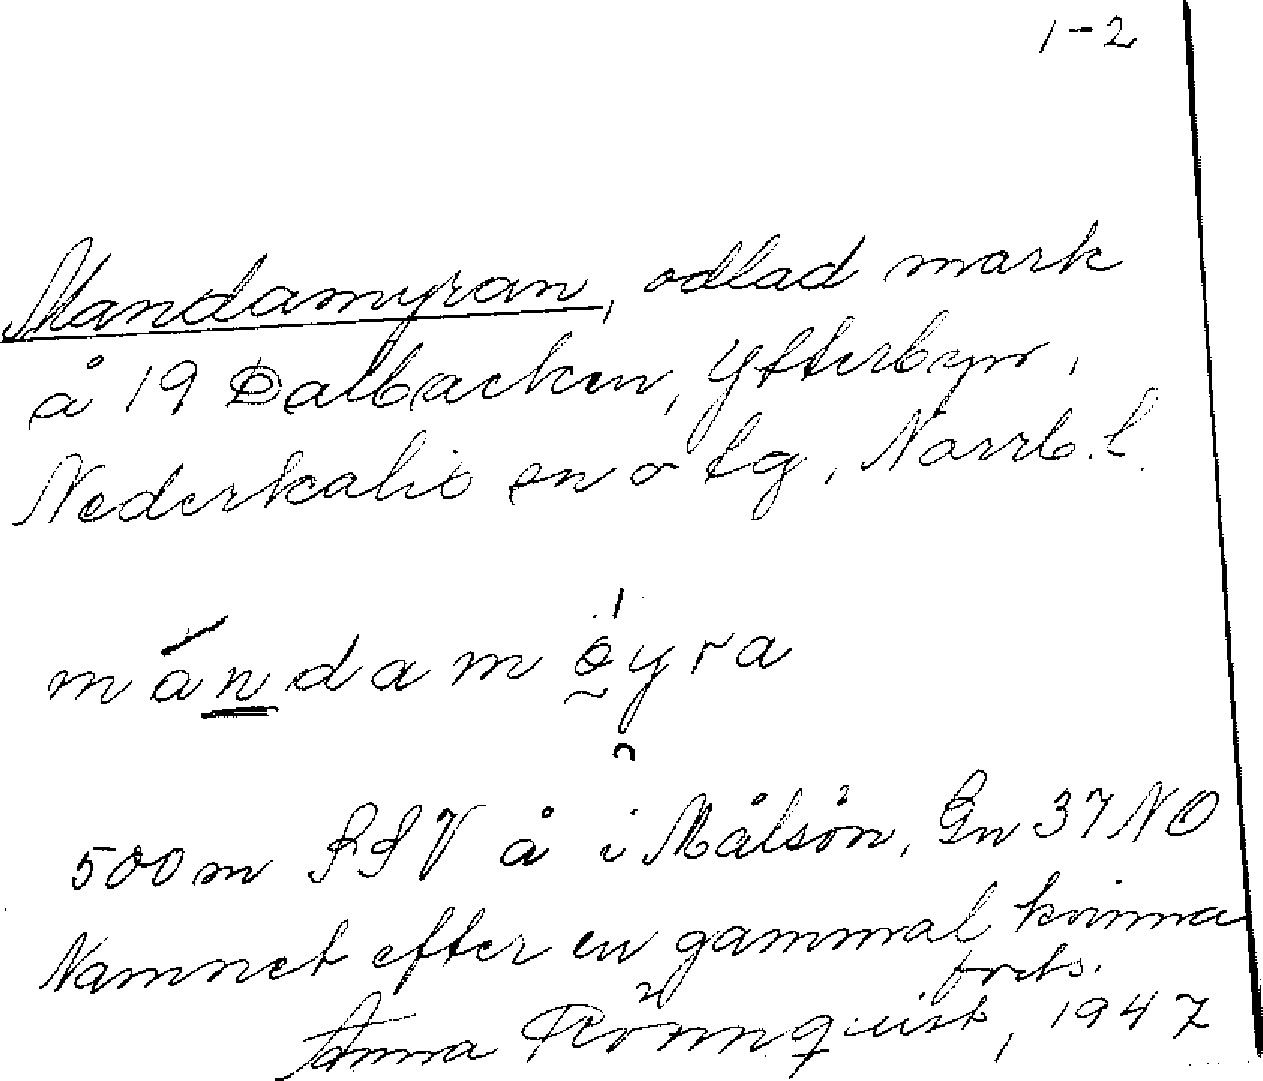 1-2
Mandamyran, odlad mark
å 19 Dalbacken, Ytterbyn,
Nederkalix sn o tg, Norrb. l.
mándamöyra
500 m SSV å i Målsön, Gn 37 NO
Namnet efter en gammal kvinna
forts.
Anna Rönnquist, 1947